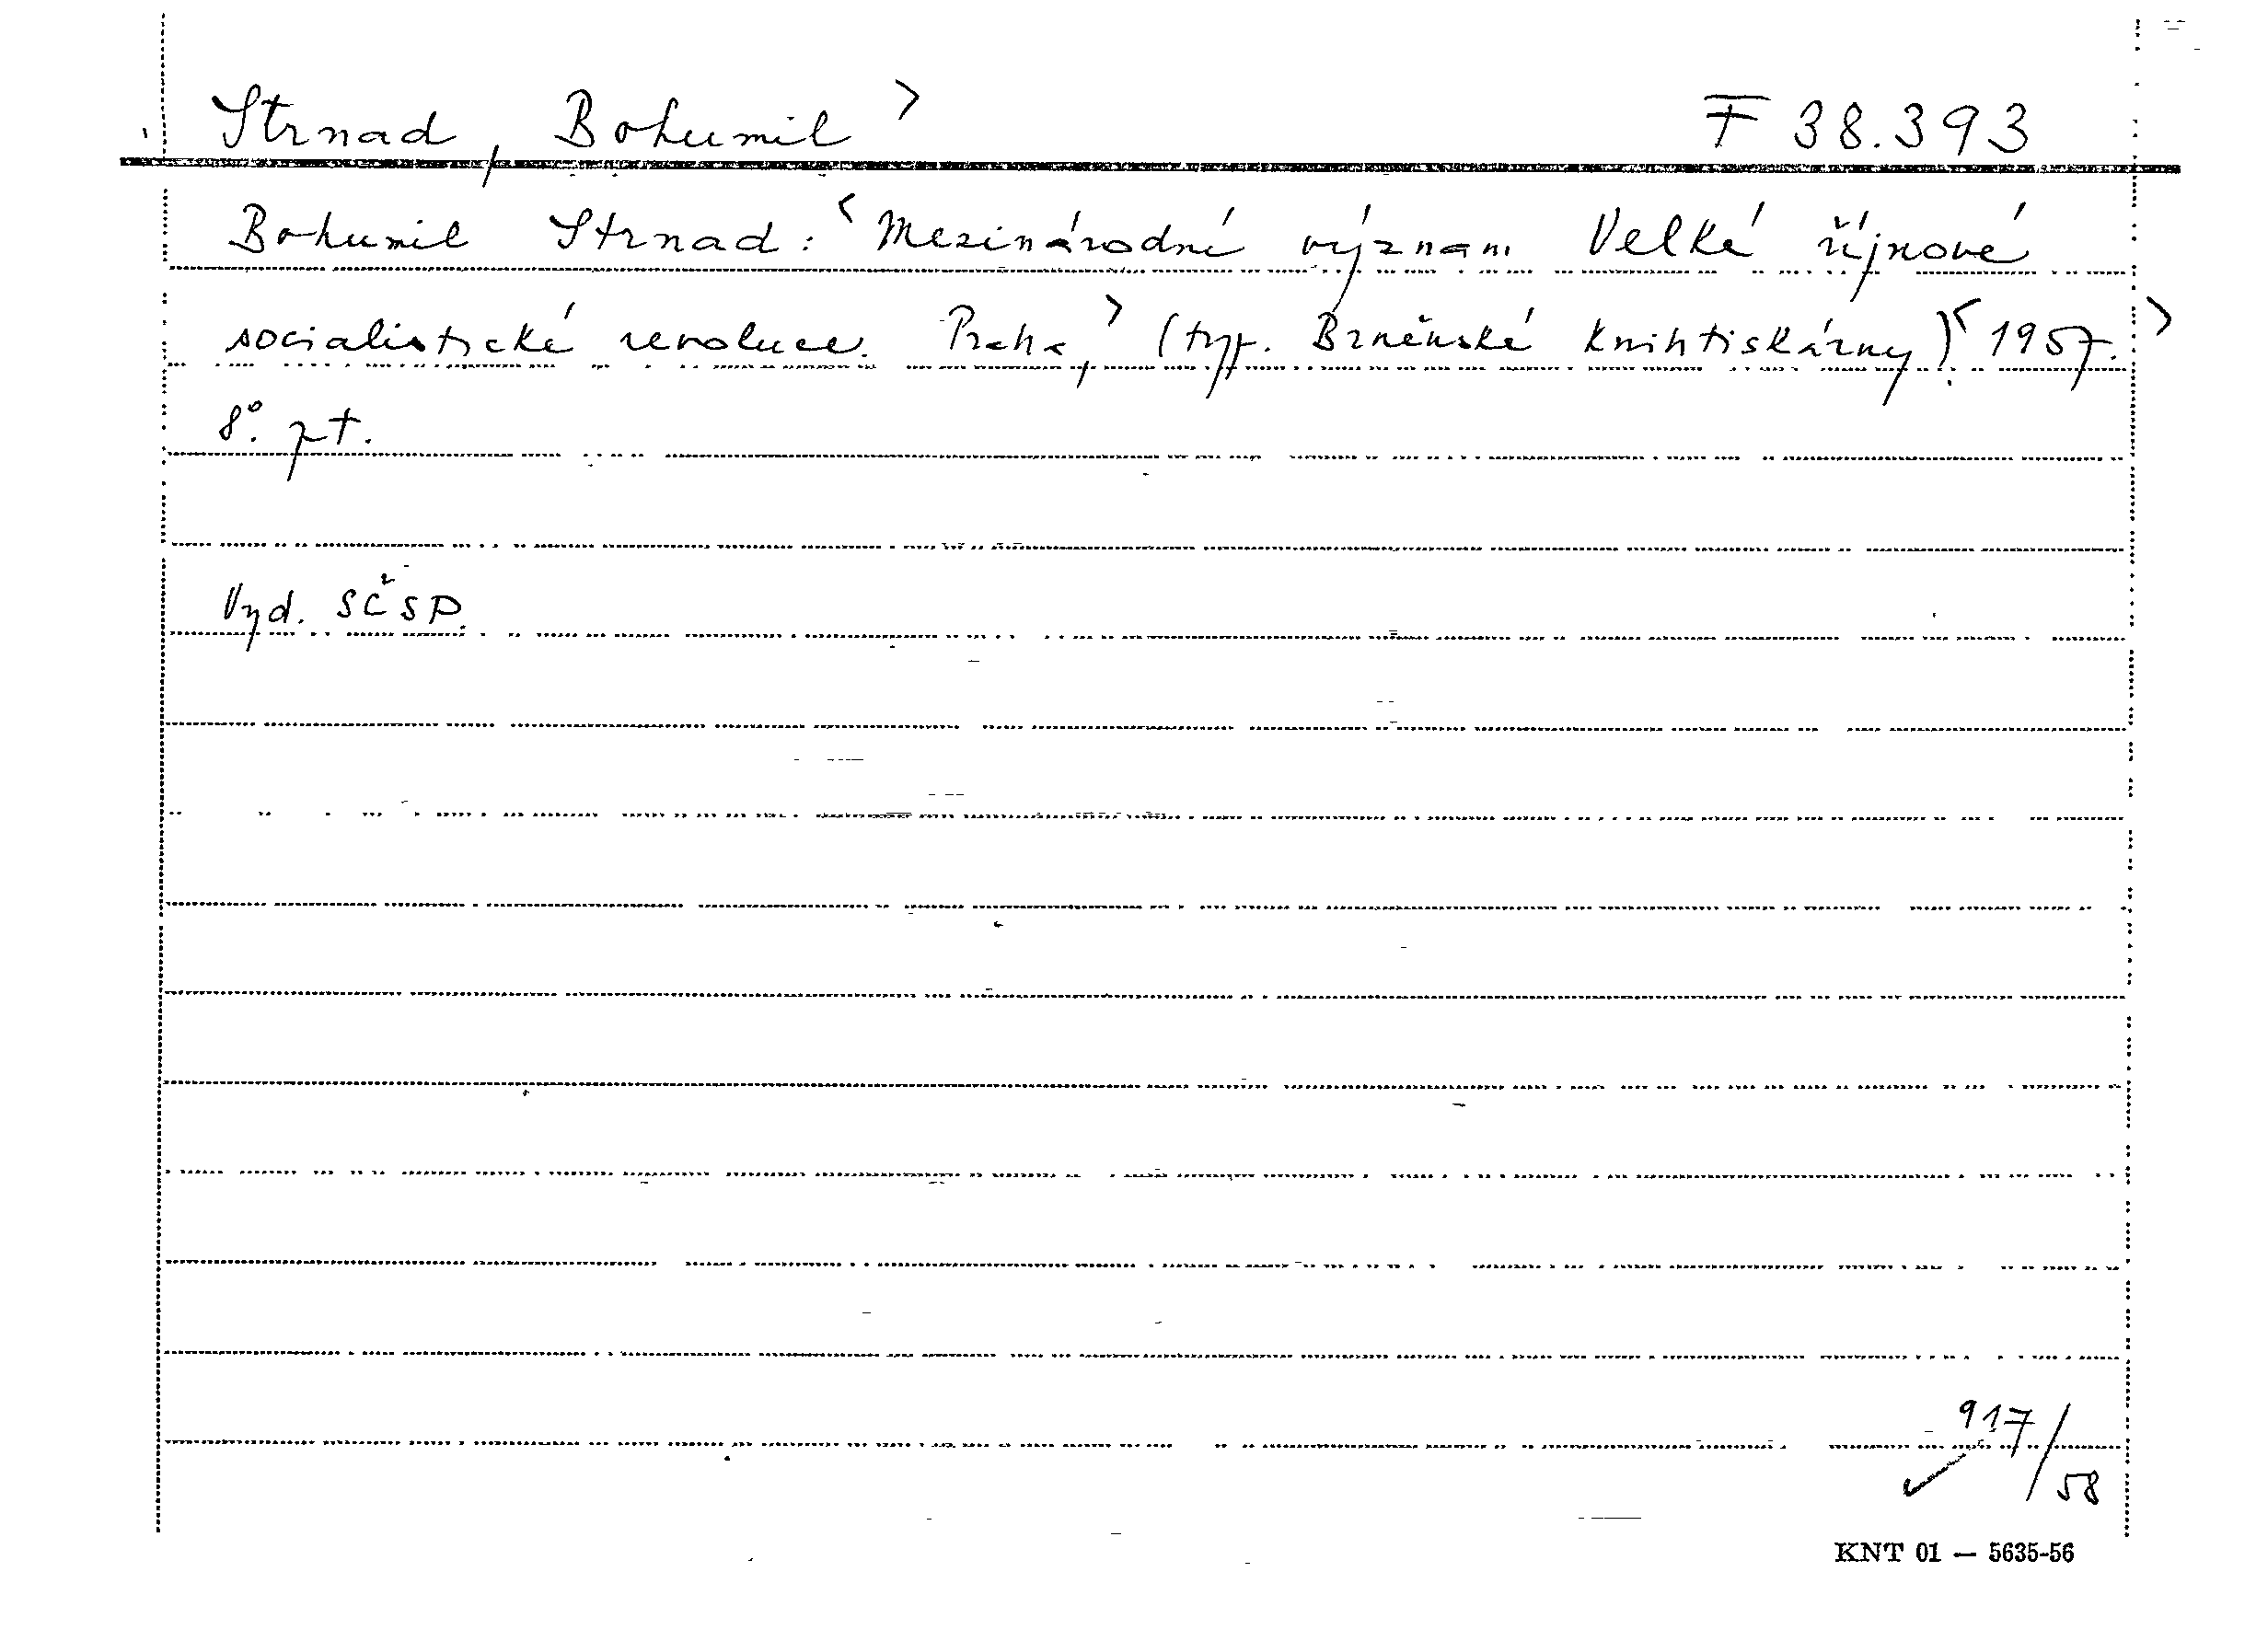 Strnad, Bohumil > F 38.393
Bohumil Strnad: < Mezinárodní význam Velké říjnové
socialistické revoluce. Praha, > (typ. Brněnské knihtiskárny). < 1957. >
8°. pt.
Vyd. SČSP.
917/58
KNT 01 — 5635-56